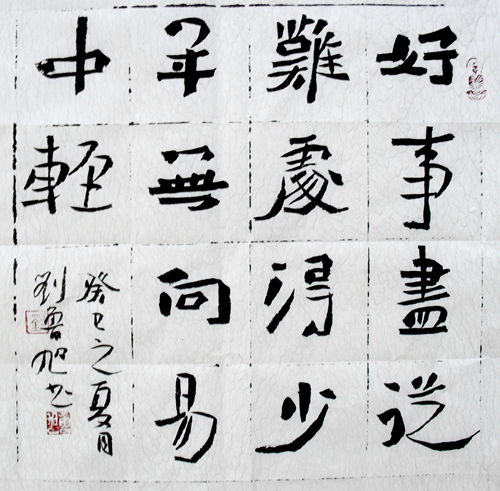 好事盡從
難處得少
年無向易
中輕
癸巳之夏月
劉旭书